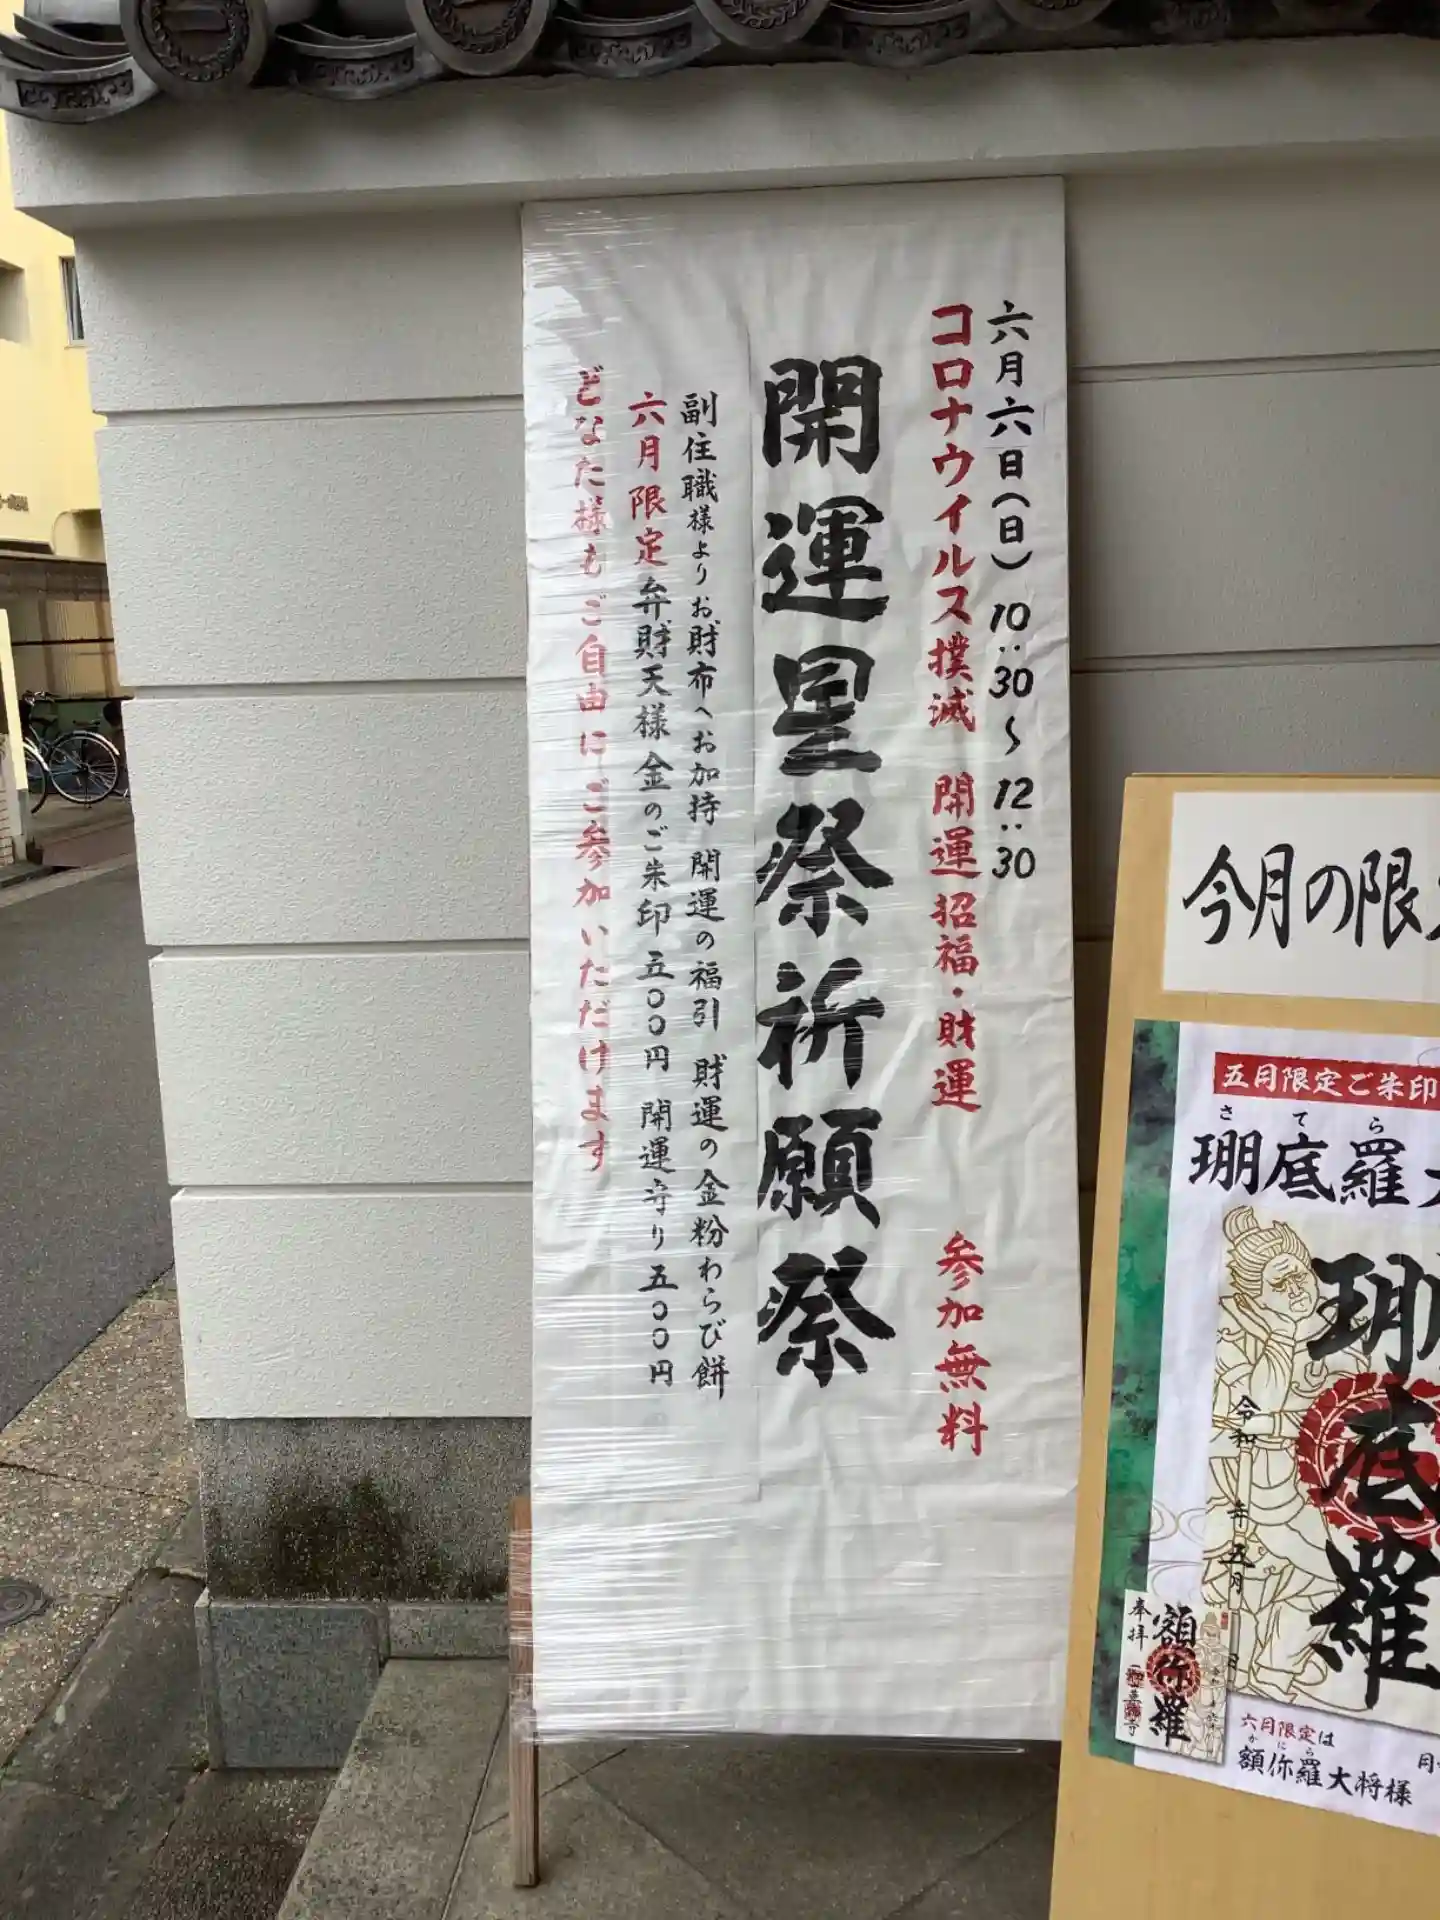 六月六日(日) 10:30〜12:30
コロナウイルス撲滅 開運招福・財運 参加無料
開運星祭祈願祭
副住職様よりお財布へお加持 開運の福引 財運の金粉わらび餅
六月限定弁財天様金のご朱印五〇〇円 開運守り五〇〇円
どなた様もご自由にご参加いただけます
今月の限
五月限定ご朱印
さてら
珊底羅
珊底羅
令和 年五月
奉拝
額你羅
六月限定は
かにら
額你羅大将様